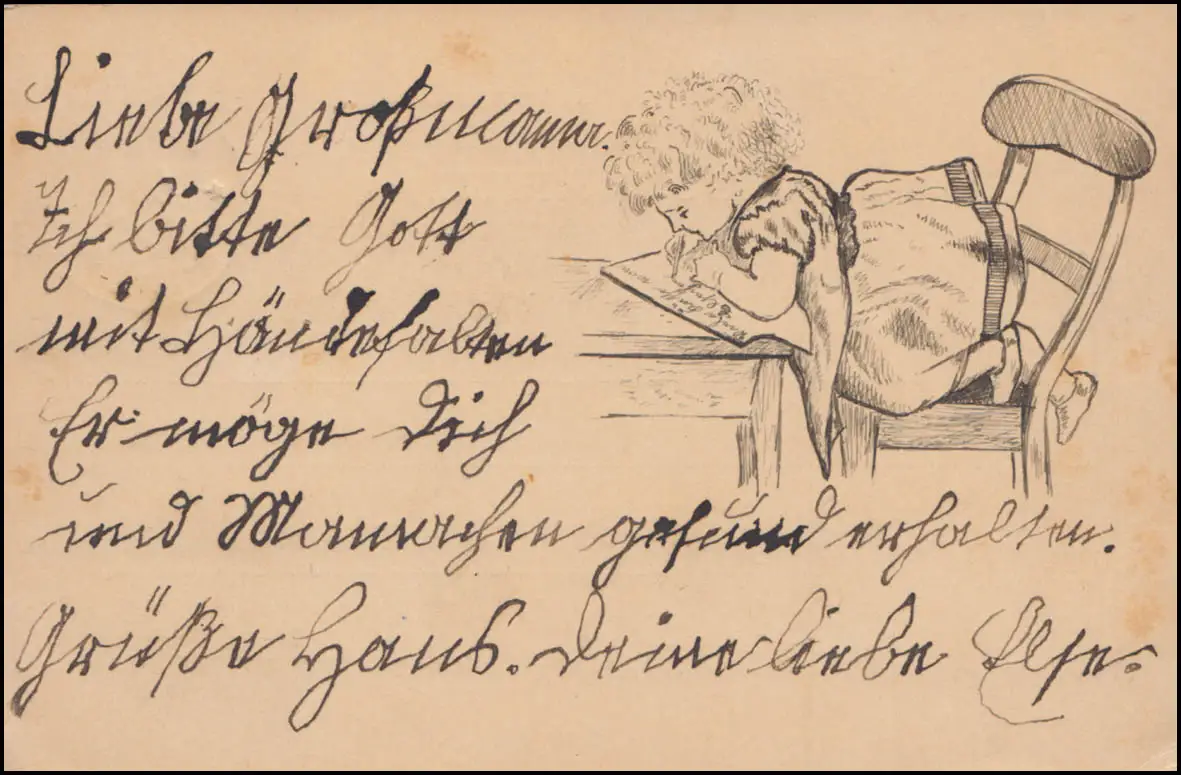 Liebe Großmama.
Ich bitte Gott
mit Händefalten
Er möge Dich
und Mamachen gesund erhalten.
Grüße Hans. Deine liebe Else.